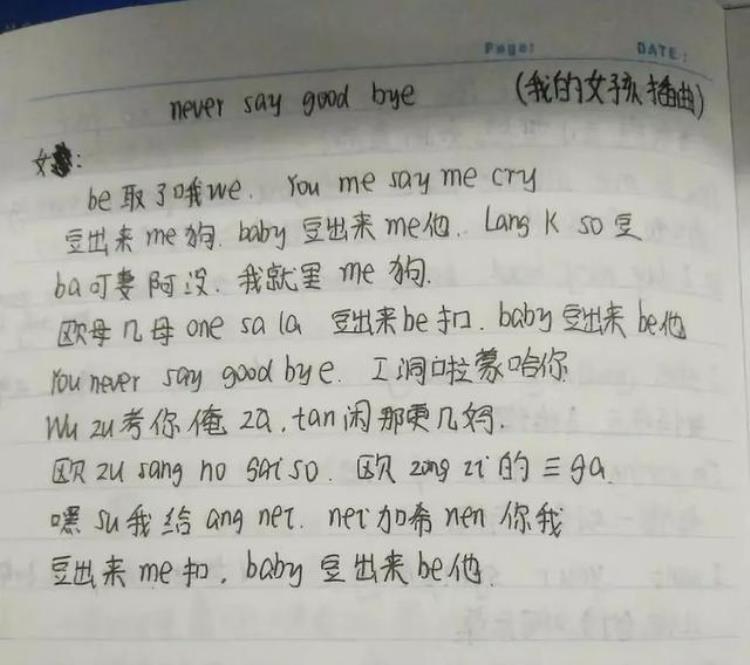 Page: DATE:
never say good bye (我的女孩插曲)
女:
be取了哦we. You me say me cry
豆出来me狗. baby 豆出来me他. Lang K so 豆
ba可妻阿没. 我就里me狗.
欧母几母one sa la 豆出来be扣. baby 豆出来be他
You never say good bye. 工洞啦蒙哈你
Wu zu考你俺za. tan闲那更几妈.
欧zu sang no gai so. 欧zang zi的三ga
嘿su我给ang net. net加希nen你我
豆出来me扣. baby 豆出来be他.